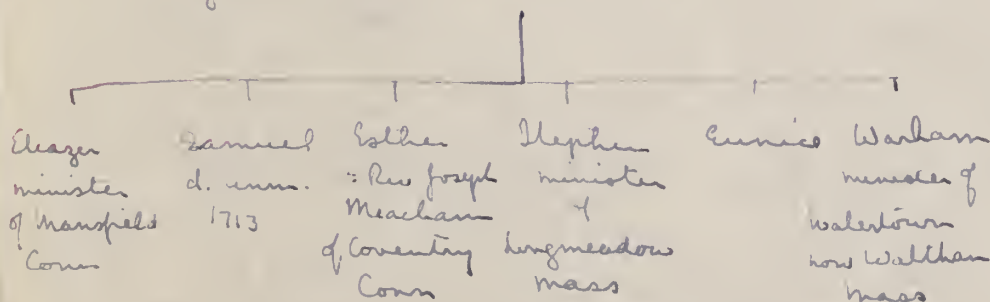 Eleazer
minister
of Mansfield
Conn
Samuel
d. unm.
1713
Esther
= Rev Joseph
Meacham
of Coventry
Conn
Stephen
minister
of
Longmeadow
Mass
Eunice
Warham
minister of
Watertown
now Waltham
Mass